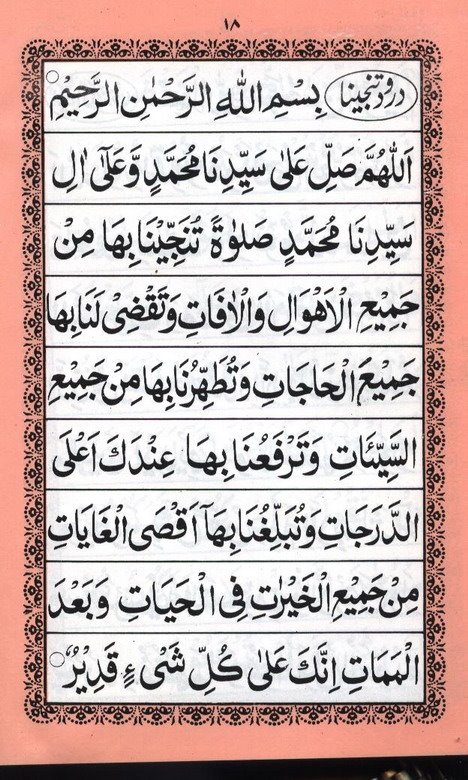 ۱۸
درود تنجینا بِسْمِ اللهِ الرَّحْمٰنِ الرَّحِیْمِ
اَللّٰهُمَّ صَلِّ عَلٰی سَیِّدِنَا مُحَمَّدٍ وَّعَلٰٓی اٰلِ
سَیِّدِنَا مُحَمَّدٍ صَلٰوةً تُنَجِّیْنَا بِهَا مِنْ
جَمِیْعِ الْاَهْوَالِ وَالْاٰفَاتِ وَتَقْضِیْ لَنَا بِهَا
جَمِیْعَ الْحَاجَاتِ وَتُطَهِّرُنَا بِهَا مِنْ جَمِیْعِ
السَّیِّئَاتِ وَتَرْفَعُنَا بِهَا عِنْدَكَ اَعْلَی
الدَّرَجَاتِ وَتُبَلِّغُنَا بِهَآ اَقْصَی الْغَایَاتِ
مِنْ جَمِیْعِ الْخَیْرٰتِ فِی الْحَیَاتِ وَبَعْدَ
الْمَمَاتِ اِنَّكَ عَلٰی كُلِّ شَیْءٍ قَدِیْرٌ